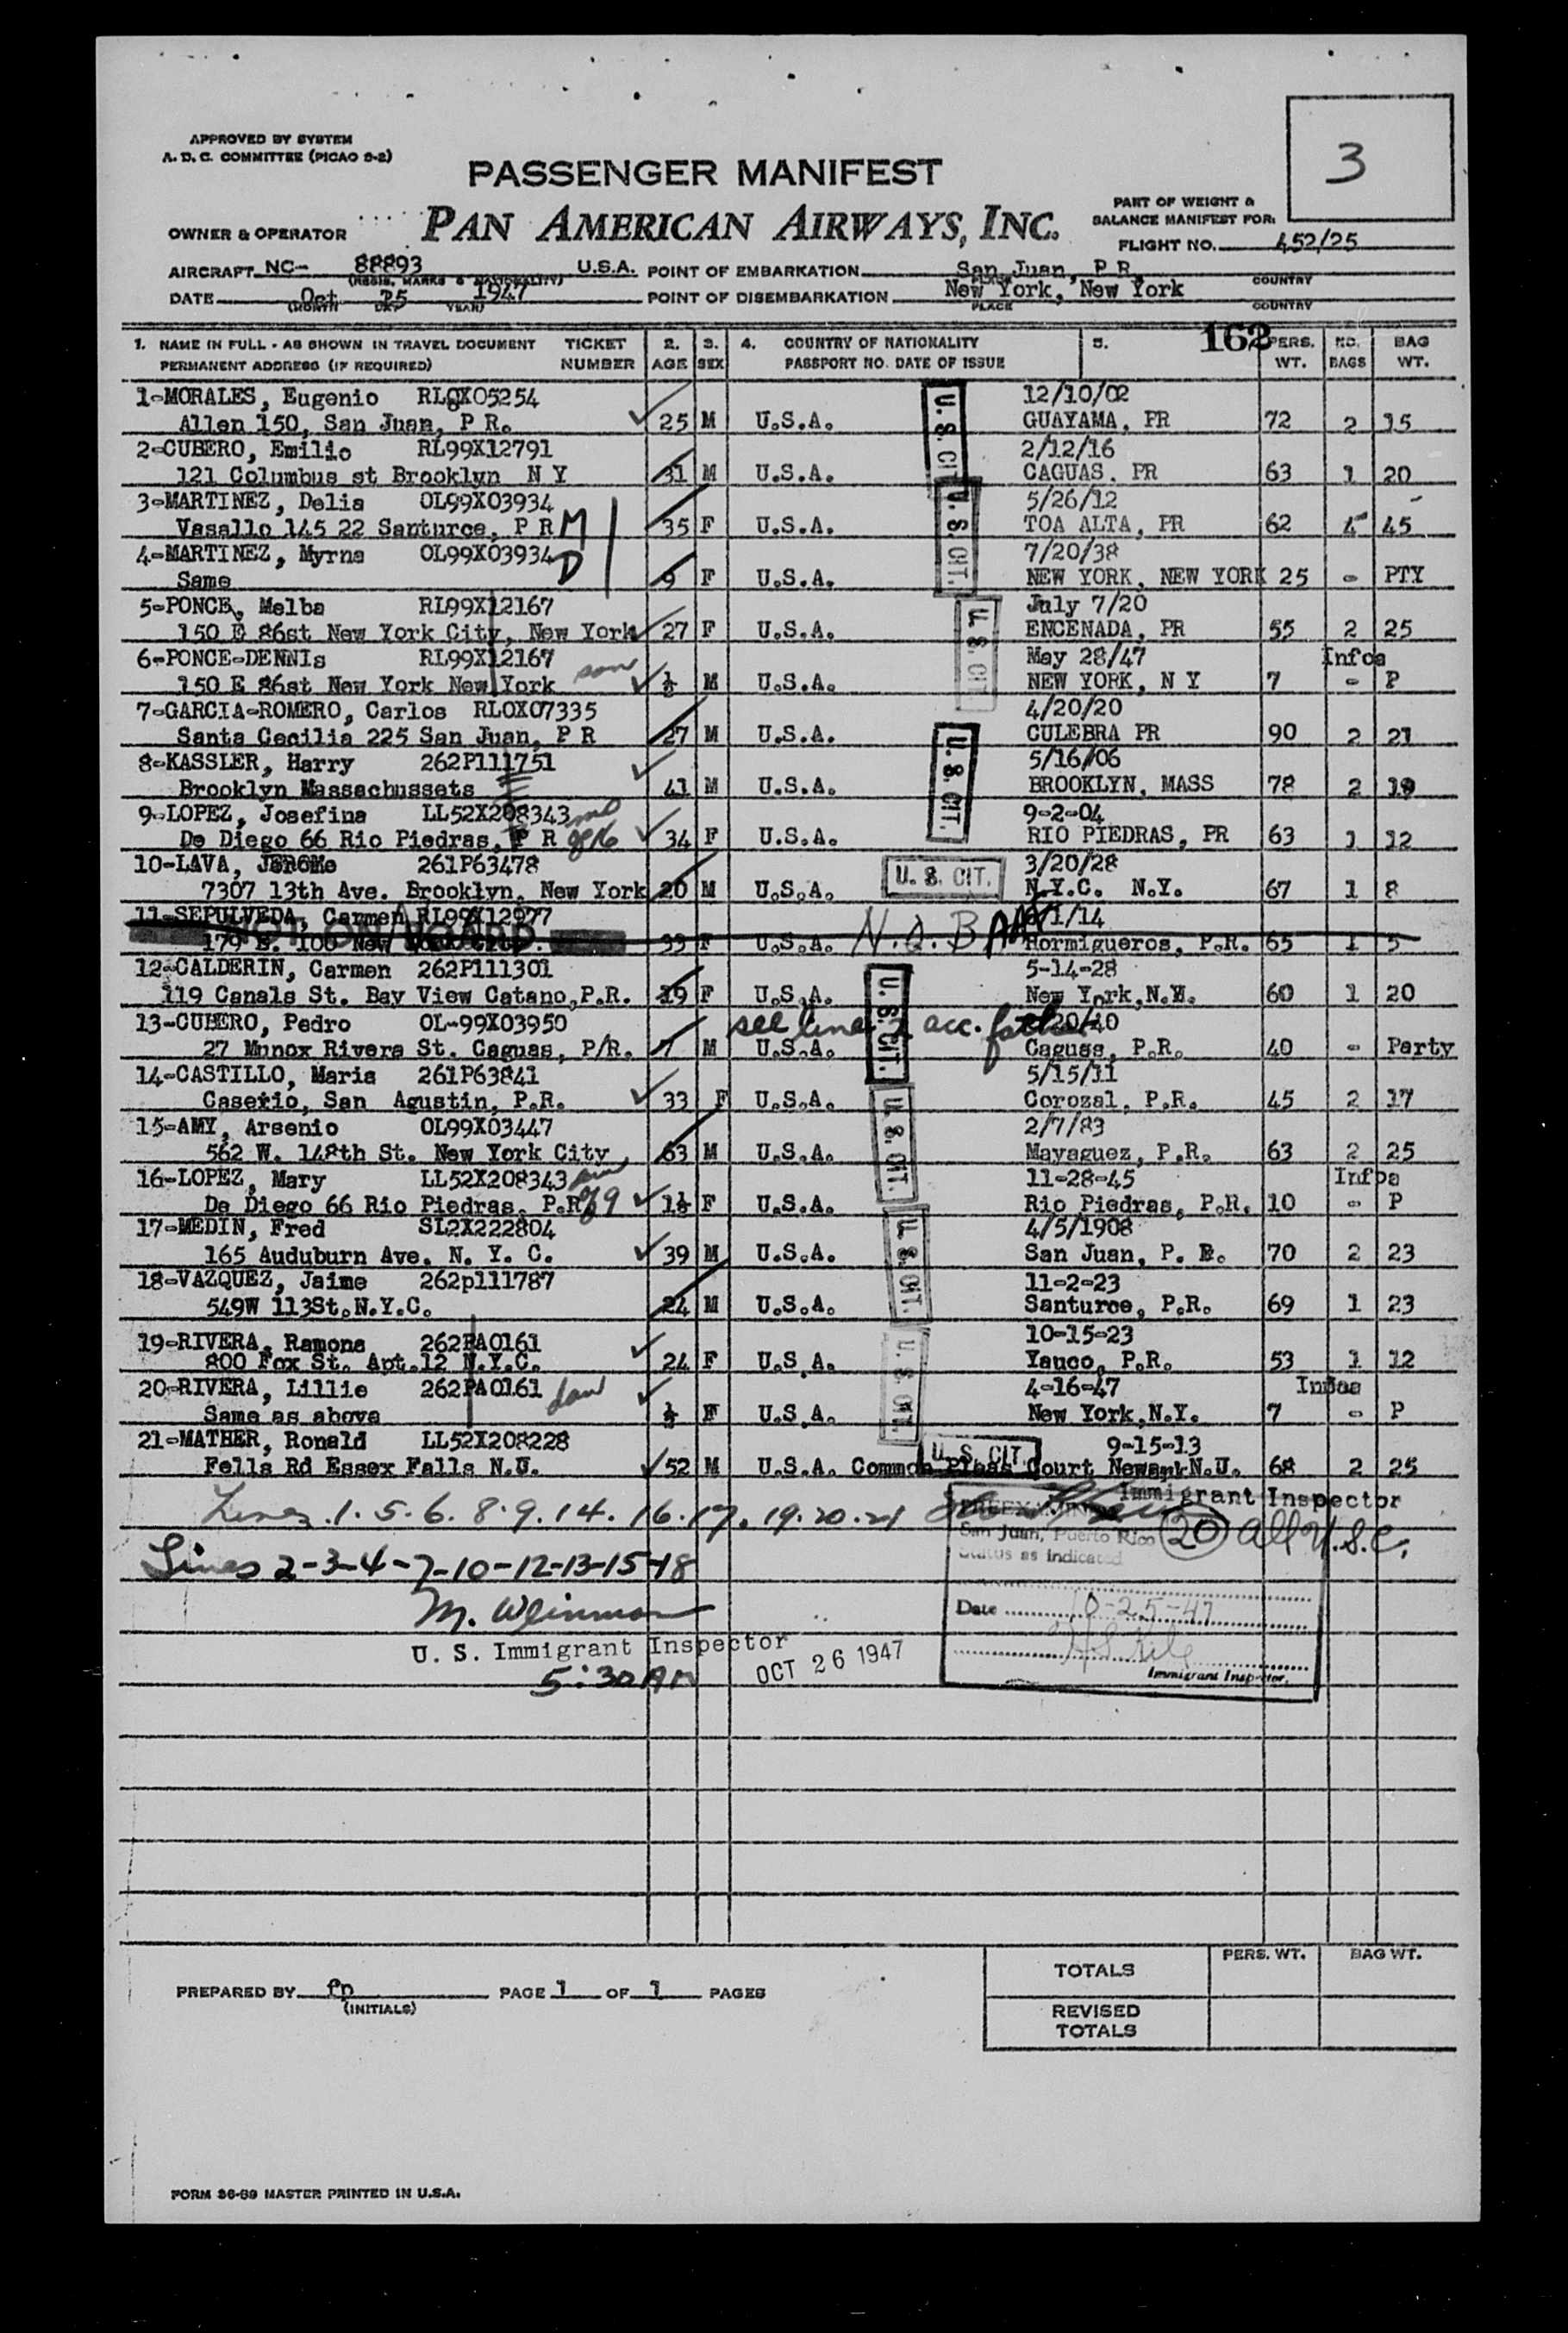 3
APPROVED BY SYSTEM
A. D. C. COMMITTEE (PICAO S-2)
PASSENGER MANIFEST
PAN AMERICAN AIRWAYS, INC.
PART OF WEIGHT &
BALANCE MANIFEST FOR:
OWNER & OPERATOR
FLIGHT NO. 452/25
AIRCRAFT NC- 88893 U.S.A. POINT OF EMBARKATION San Juan, P R
(REGIS. MARKS & NATIONALITY) PLACE COUNTRY
DATE Oct 25 1947 POINT OF DISEMBARKATION New York, New York
(MONTH DAY YEAR) PLACE COUNTRY
162
1. NAME IN FULL - AS SHOWN IN TRAVEL DOCUMENT TICKET 2. 3. 4. COUNTRY OF NATIONALITY 5. PERS. NO. BAG
PERMANENT ADDRESS (IF REQUIRED) NUMBER AGE SEX PASSPORT NO. DATE OF ISSUE WT. BAGS WT.
1-MORALES, Eugenio 12/10/02
Allen 150, San Juan, P R. 25 M U.S.A. U. S. CIT. GUAYAMA, PR 72 2 15
2-CUBERO, Emilio RL99X12791 2/12/16
121 Columbus st Brooklyn N Y 31 M U.S.A. CAGUAS, PR 63 1 20
3-MARTINEZ, Delia OL99X03934 5/26/12
Vasallo 145 22 Santurce, P R M 35 F U.S.A. U. S. CIT. TOA ALTA, PR 62 4 45
4-MARTINEZ, Myrna OL99X03934 D 7/20/38
Same 9 F U.S.A. NEW YORK, NEW YORK 25 - PTY
5-PONCE, Melba RL99X12167 July 7/20
150 E 86st New York City, New York 27 F U.S.A. U. S. CIT ENCENADA, PR 55 2 25
6-PONCE-DENNIs RL99X12167 son May 28/47 Infoa
150 E 86st New York New York ½ M U.S.A. NEW YORK, N Y 7 - P
7-GARCIA-ROMERO, Carlos RLOX07335 4/20/20
Santa Cecilia 225 San Juan, P R 27 M U.S.A. CULEBRA PR 90 2 21
8-KASSLER, Harry 262P111751 5/16/06
Brooklyn Massachussets 41 M U.S.A. U. S. CIT. BROOKLYN, MASS 78 2 19
9-LOPEZ, Josefina LL52X208343 9-2-04
De Diego 66 Rio Piedras, P R of 16 34 F U.S.A. RIO PIEDRAS, PR 63 1 12
10-LAVA, JEROMe 261P63478 3/20/28
7307 13th Ave. Brooklyn, New York 20 M U.S.A. U. S. CIT. N.Y.C. N.Y. 67 1 8
11-SEPULVEDA, Carmen RL99X12977 /1/14
NOT ON BOARD
179 E. 100 New 33 F U.S.A. N.O.B Hormigueros, P.R. 65 1 5
12-CALDERIN, Carmen 262P111301 5-14-28
119 Canals St. Bay View Catano,P.R. 19 F U.S.A. U. S. CIT. New York,N.Y. 60 1 20
13-CUBERO, Pedro OL-99X03950 see line 2 acc. father 20/40
27 Munox Rivera St. Caguas, P/R. 7 M U.S.A. Caguas, P.R. 40 - Party
14-CASTILLO, Maria 261P63841 5/15/11
Caserio, San Agustin, P.R. 33 F U.S.A. U. S. CIT. Corozal, P.R. 45 2 17
15-AMY, Arsenio OL99X03447 2/7/83
562 W. 148th St. New York City 63 M U.S.A. Mayaguez, P.R. 63 2 25
16-LOPEZ, Mary LL52X208343 11-28-45 Infoa
De Diego 66 Rio Piedras, P.R. of 9 1½ F U.S.A. Rio Piedras, P.R. 10 - P
17-MEDIN, Fred SL2X222804 4/5/1908
165 Auduburn Ave. N. Y. C. 39 M U.S.A. U. S. CIT. San Juan, P. R. 70 2 23
18-VAZQUEZ, Jaime 262p111787 11-2-23
549W 113St.N.Y.C. 24 M U.S.A. Santurce, P.R. 69 1 23
19-RIVERA, Ramona 262PA0161 10-15-23
800 Fox St. Apt.12 N.Y.C. 24 F U.S.A. U. S. CIT. Yauco, P.R. 53 1 12
20-RIVERA, Lillie 262PA0161 dau 4-16-47
Same as above ½ F U.S.A. New York,N.Y. 7 - P
21-MATHER, Ronald LL52X208228 U. S. CIT. 9-15-13
Fells Rd Essex Falls N.U. 52 M U.S.A. Common Pleas Court Newark N.U. 68 2 25
Lines 1. 5. 6. 8. 9. 14. 16. 17. 19. 20. 21
Immigrant Inspector
PREEXAMINED
San Juan, Puerto Rico 20 all U.S.C.
Status as indicated
Lines 2-3-4-7-10-12-13-15-18
M. Weinman
Date 10-25-47
U. S. Immigrant Inspector OCT 26 1947
5:30 AM
Immigrant Inspector.
PERS. WT. BAG WT.
TOTALS
PREPARED BY fp PAGE 1 OF 1 PAGES
(INITIALS)
REVISED
TOTALS
FORM 36-69 MASTER PRINTED IN U.S.A.